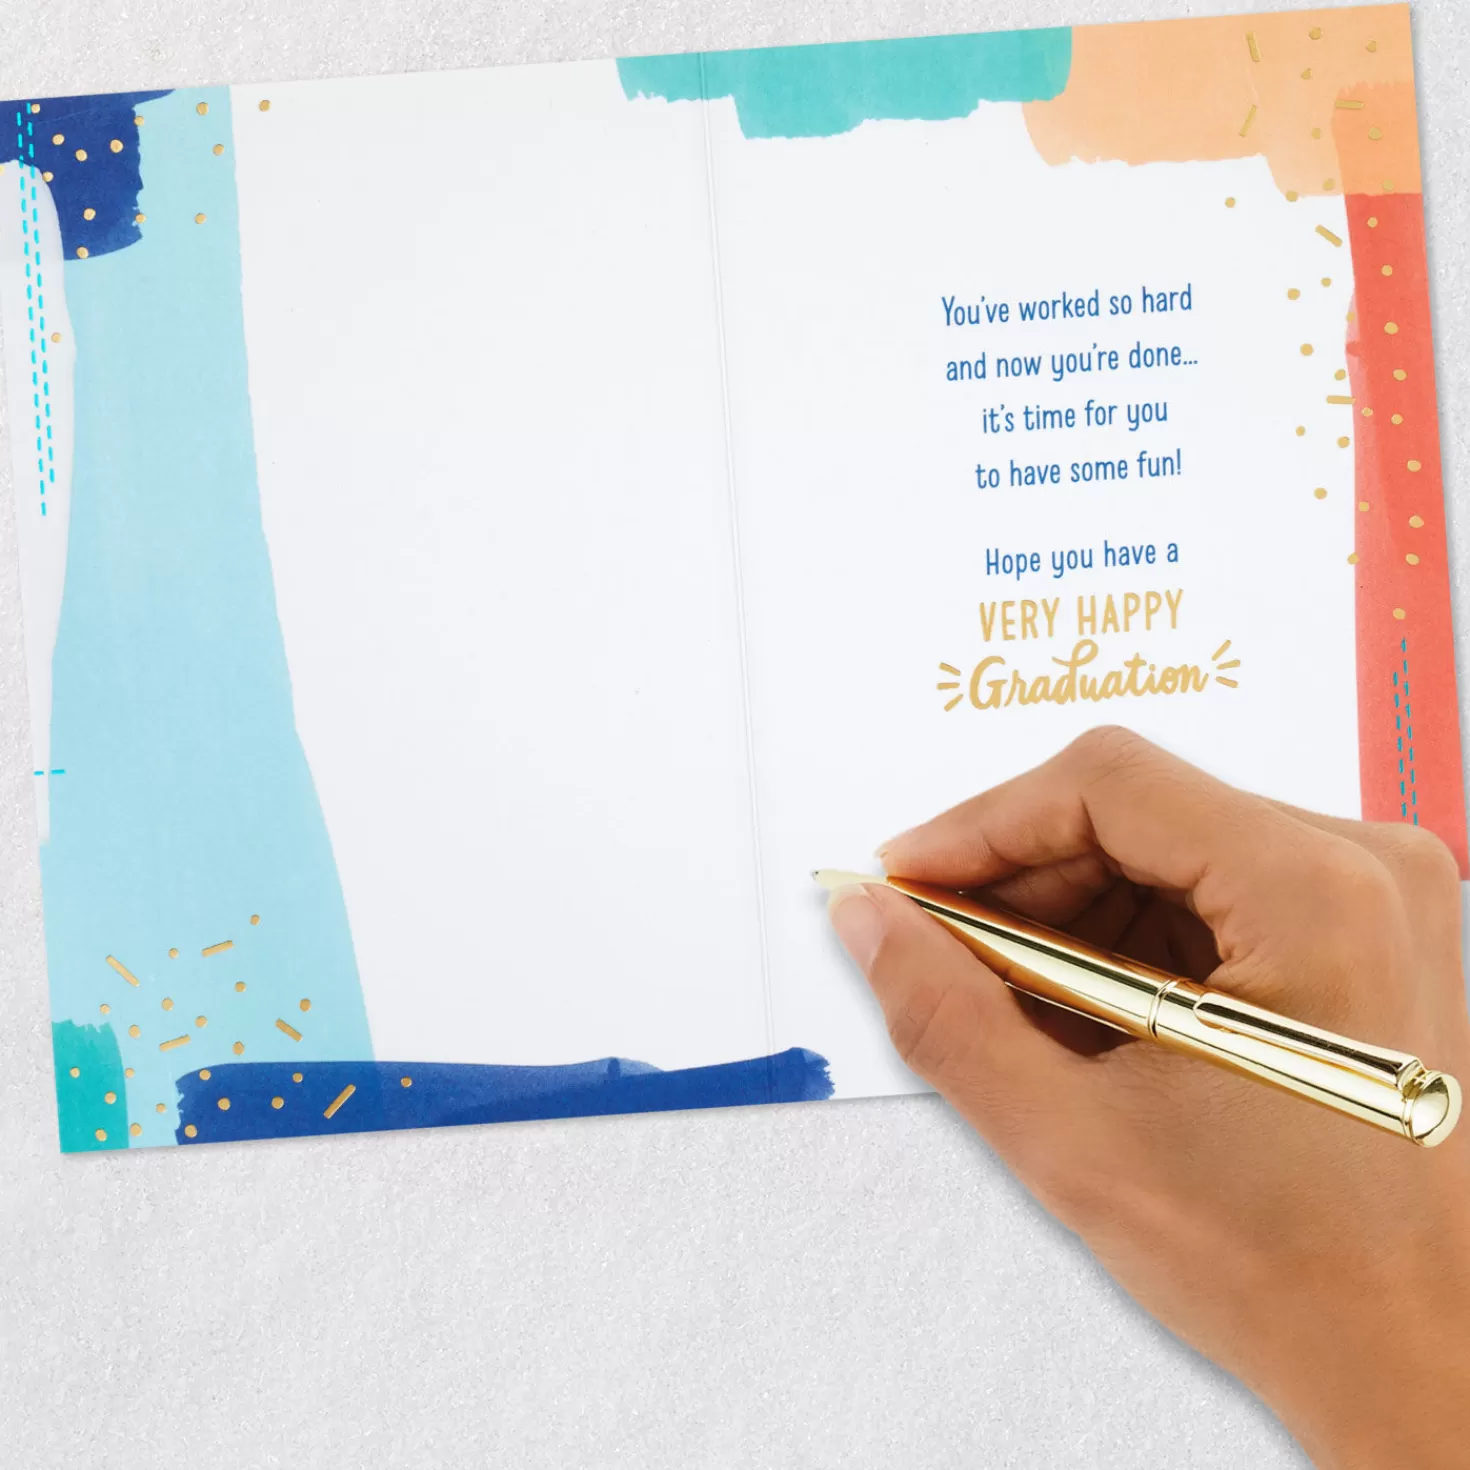 You've worked so hard
and now you're done...
it's time for you
to have some fun!
Hope you have a
VERY HAPPY
Graduation